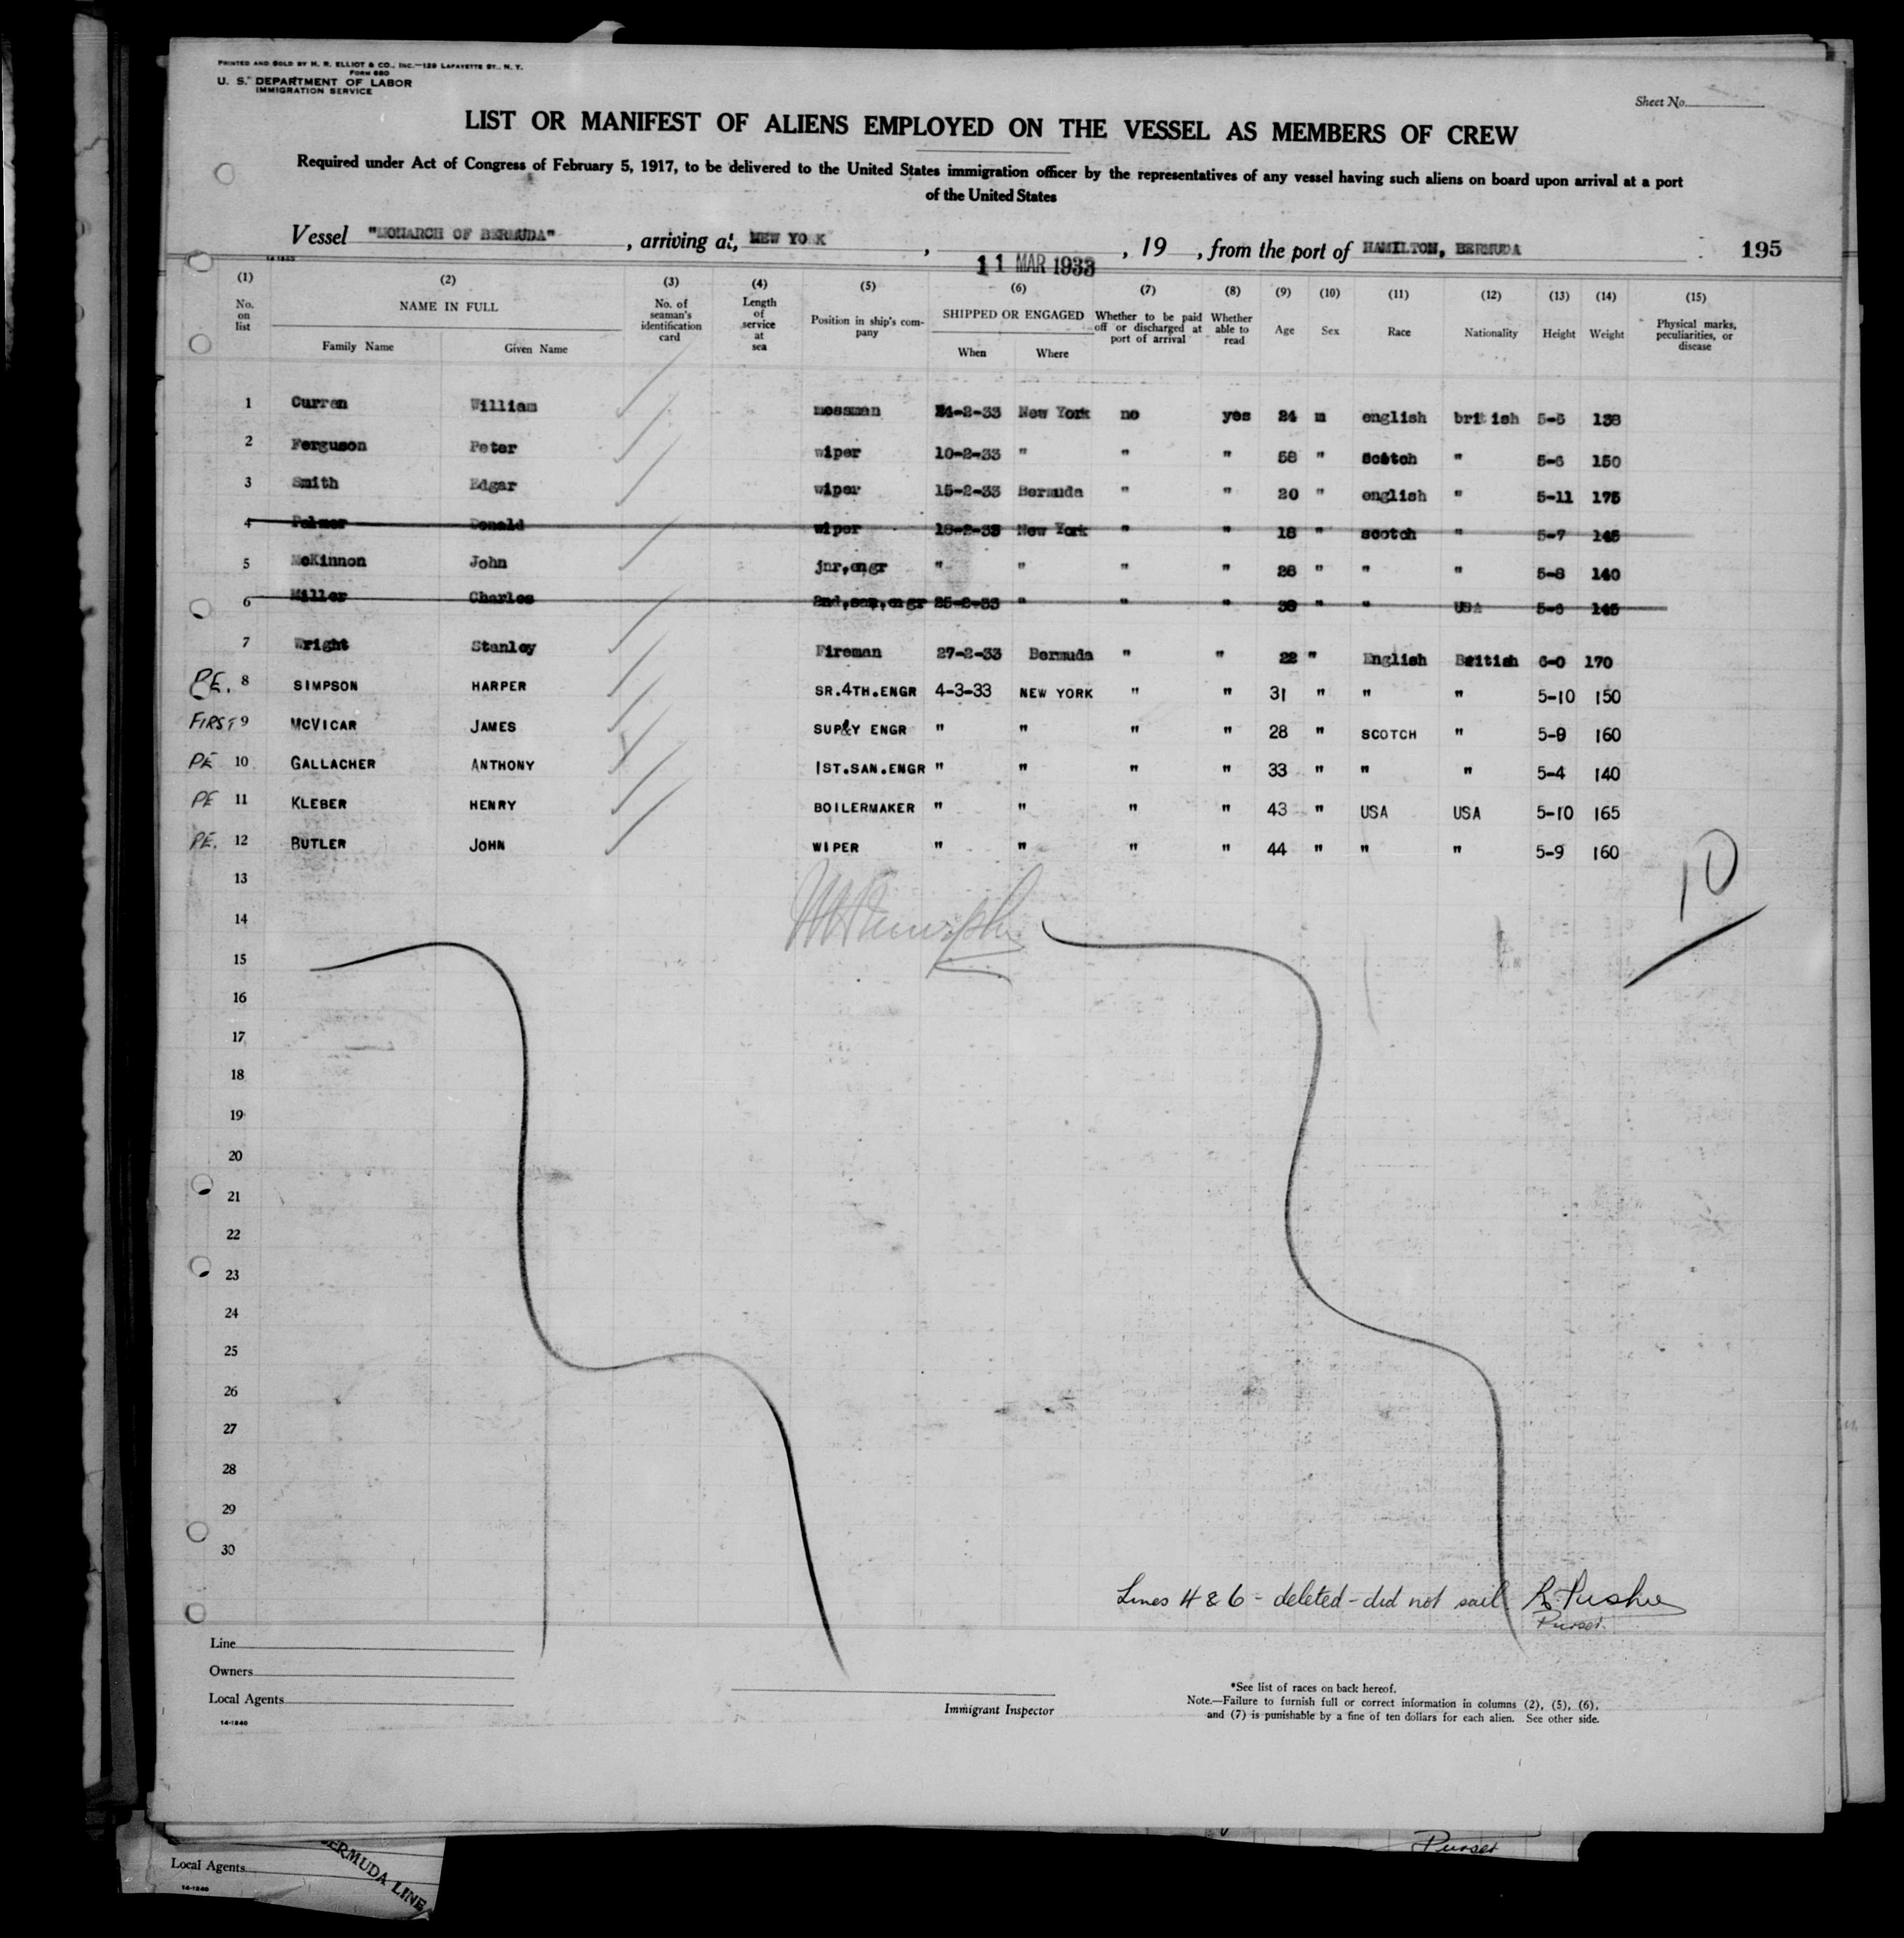 PRINTED AND SOLD BY H. R. ELLIOT & CO., INC.—129 LAFAYETTE ST., N. Y.
FORM 680
U. S. DEPARTMENT OF LABOR
IMMIGRATION SERVICE
Sheet No.
LIST OR MANIFEST OF ALIENS EMPLOYED ON THE VESSEL AS MEMBERS OF CREW
Required under Act of Congress of February 5, 1917, to be delivered to the United States immigration officer by the representatives of any vessel having such aliens on board upon arrival at a port
of the United States
Vessel "MONARCH OF BERMUDA", arriving at, NEW YORK, 11 MAR 1933, 19 , from the port of HAMILTON, BERMUDA 195
(1) (2) (3) (4) (5) (6) (7) (8) (9) (10) (11) (12) (13) (14) (15)
No. on list NAME IN FULL Family Name Given Name No. of seaman's identification card Length of service at sea Position in ship's company SHIPPED OR ENGAGED When Where Whether to be paid off or discharged at port of arrival Whether able to read Age Sex Race Nationality Height Weight Physical marks, peculiarities, or disease
1 Curren William messman 24-2-33 New York no yes 24 m english british 5-5 138
2 Ferguson Peter wiper 10-2-33 " " " 58 " Scotch " 5-6 150
3 Smith Edgar wiper 15-2-33 Bermuda " " 20 " english " 5-11 175
4 Palmer Donald wiper 18-2-33 New York " " 18 " scotch " 5-7 145
5 McKinnon John jnr,engr " " " " 28 " " " 5-8 140
6 Miller Charles 2nd,san,engr 25-2-33 " " " " " USA 5-6 145
7 Wright Stanley Fireman 27-2-33 Bermuda " " 22 " English British 6-0 170
PE. 8 SIMPSON HARPER SR.4TH.ENGR 4-3-33 NEW YORK " " 31 " " " 5-10 150
FIRST 9 MCVICAR JAMES SUPLY ENGR " " " " 28 " SCOTCH " 5-9 160
PE 10 GALLACHER ANTHONY 1ST.SAN.ENGR " " " " 33 " " " 5-4 140
PE 11 KLEBER HENRY BOILERMAKER " " " " 43 " USA USA 5-10 165
PE. 12 BUTLER JOHN WIPER " " " " 44 " " " 5-9 160
10
13
14
15
16
17
18
19
20
21
22
23
24
25
26
27
28
29
30
Lines 4 & 6 - deleted - did not sail.
Purser.
Line
Owners
Local Agents
14-1240
Immigrant Inspector
*See list of races on back hereof.
Note.—Failure to furnish full or correct information in columns (2), (5), (6),
and (7) is punishable by a fine of ten dollars for each alien. See other side.
Purser
BERMUDA LINE
Local Agents
14-1240